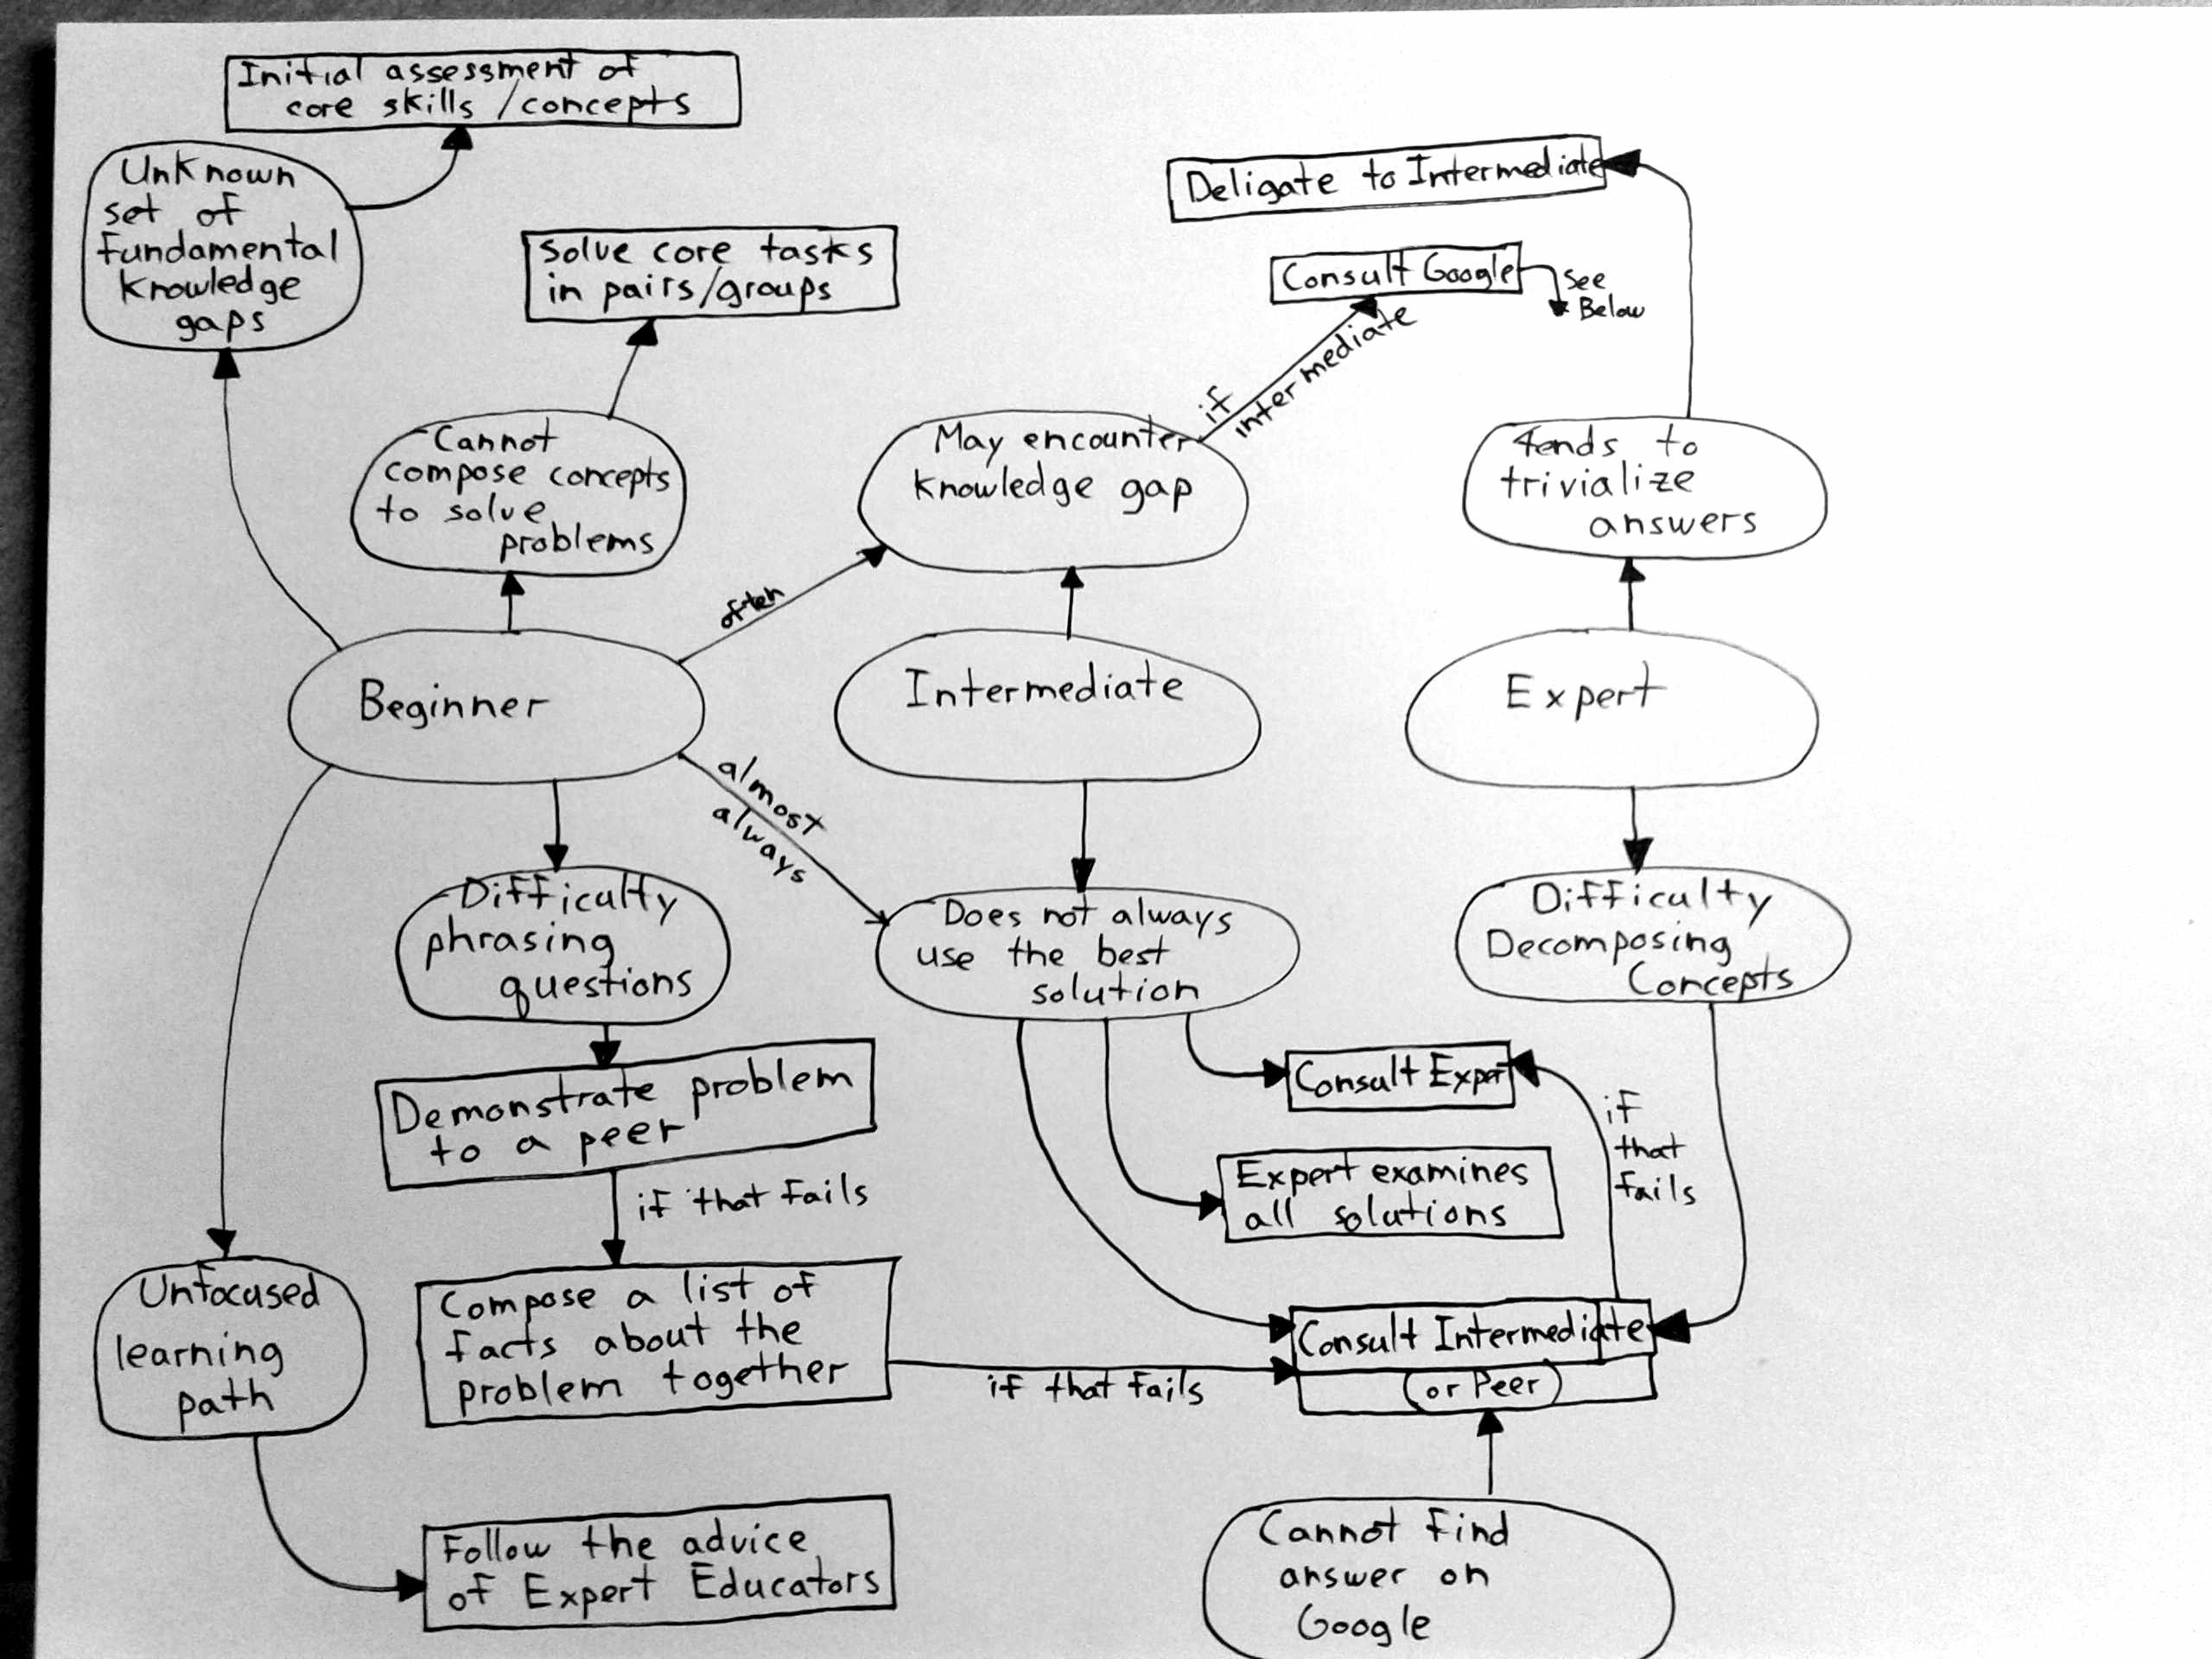 Initial assessment of
core skills/concepts
Unknown
set of
fundamental
knowledge
gaps
Solve core tasks
in pairs/groups
Deligate to Intermediate
Consult Google
See
Below
if
intermediate
Cannot
compose concepts
to solve
problems
May encounter
knowledge gap
tends to
trivialize
answers
often
Beginner
Intermediate
Expert
almost
always
Difficulty
phrasing
questions
Does not always
use the best
solution
Difficulty
Decomposing
Concepts
Demonstrate problem
to a peer
Consult Expert
if
that
fails
if that fails
Expert examines
all solutions
Unfocused
learning
path
Compose a list of
facts about the
problem together
if that fails
Consult Intermediate
(or Peer)
Follow the advice
of Expert Educators
Cannot find
answer on
Google